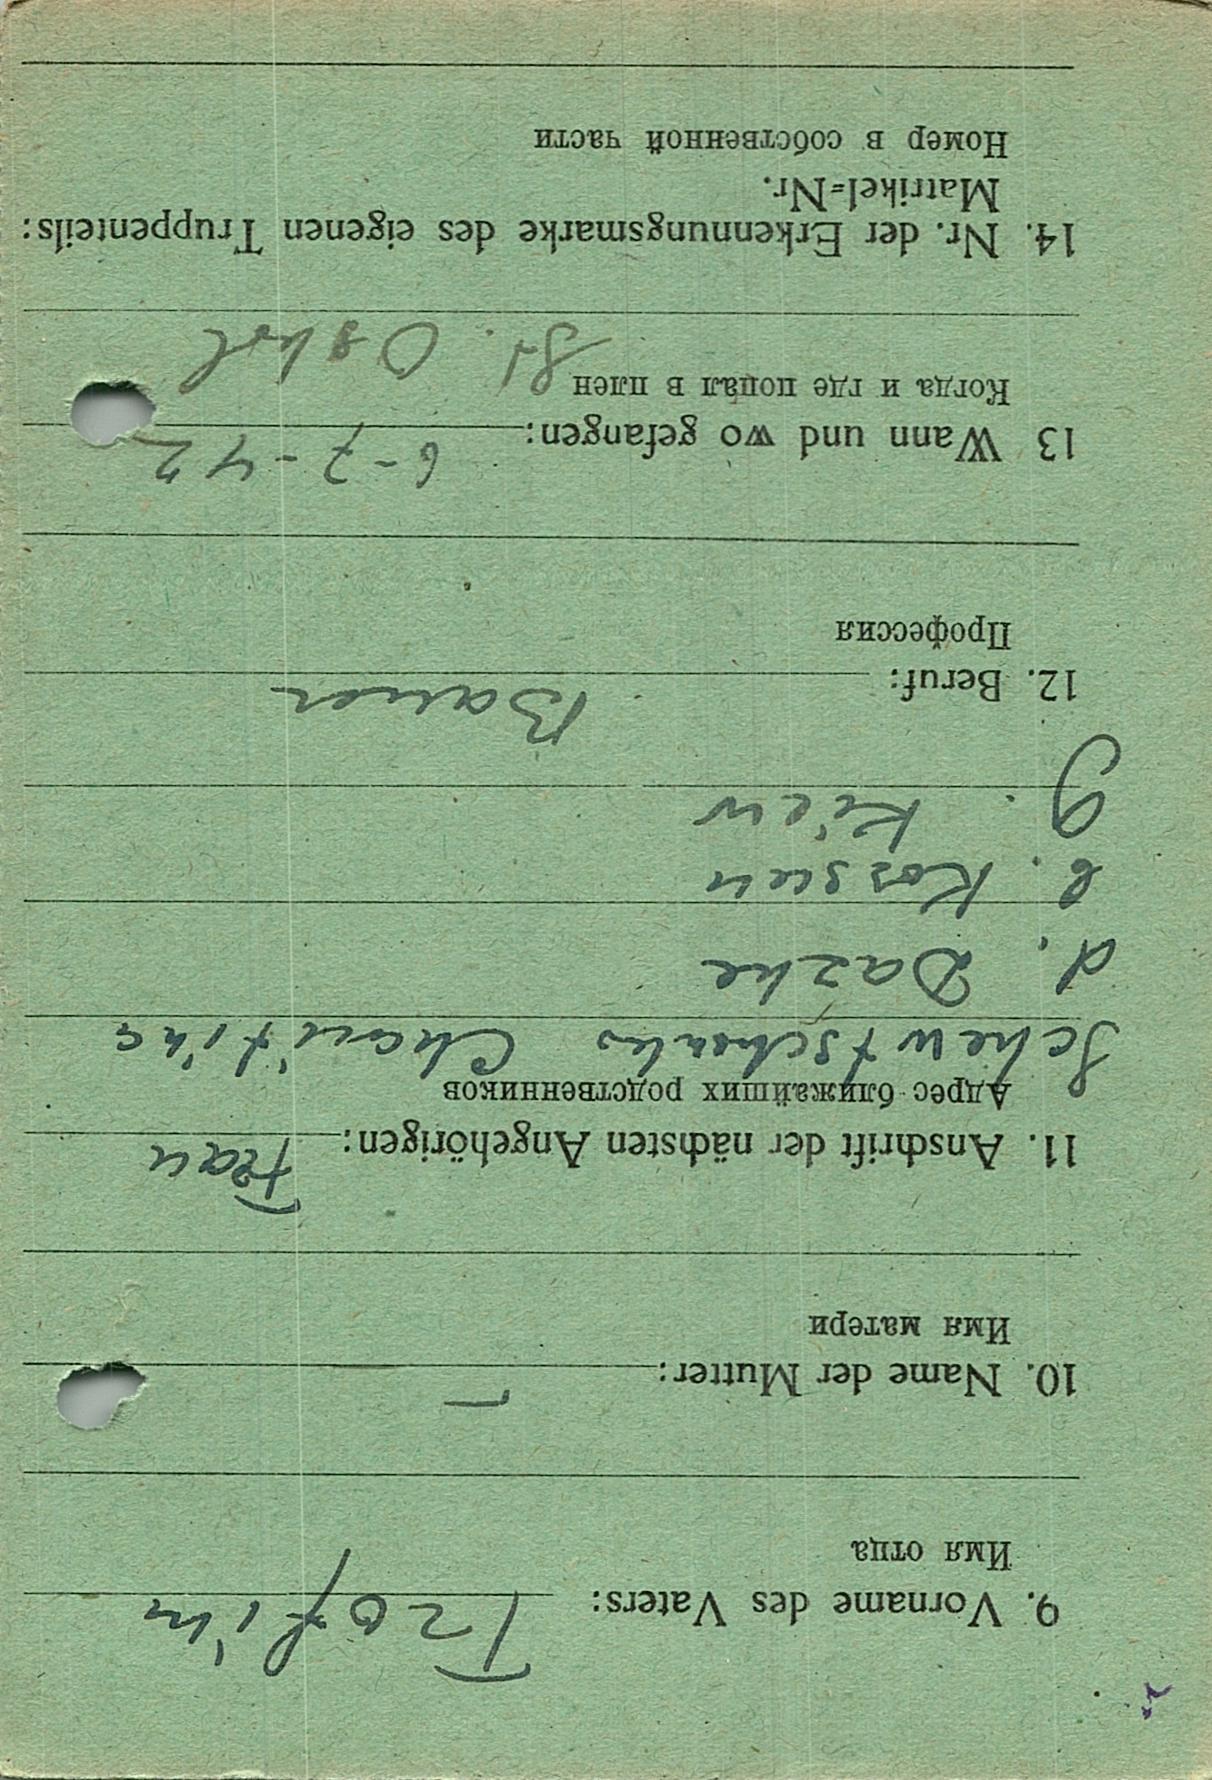 9. Vorname des Vaters: Trofim
Имя отца
10. Name der Mutter: —
Имя матери
11. Anschrift der nächsten Angehörigen: Frau
Адрес ближайших родственников
Schewtschenko Charitina
d. Dazke
b. Korsun
g. Kiew
12. Beruf: Bauer
Профессия
13 Wann und wo gefangen: 6-7-42
Когда и где попал в плен St. Oskol
14. Nr. der Erkennungsmarke des eigenen Truppenteils:
Matrikel=Nr.
Номер в собственной части